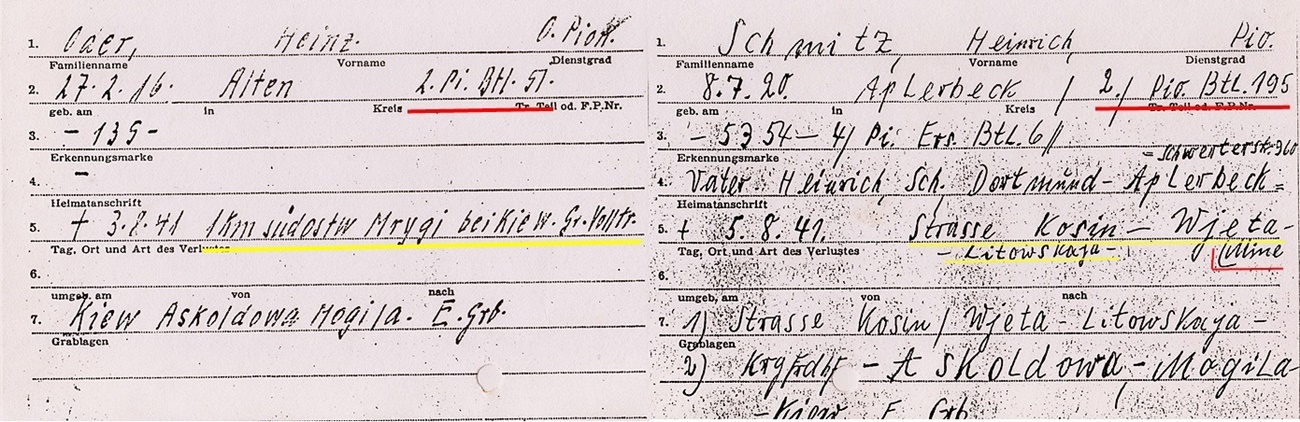 1. Oaer, Heinz. O. Pion.
Familienname Vorname Dienstgrad
2. 27.2.16. Alten 2. Pi. Btl. 51.
geb. am in Kreis Tr. Teil od. F.P.Nr.
3. - 135 -
Erkennungsmarke
4. -
Heimatanschrift
5. † 3.8.41 1km südostw Mrygi bei Kiew. Gr.
Tag, Ort und Art des Verlustes
6.
umgeb. am von nach
7. Kiew Askoldowa Mogila. E. Grb.
Grablagen
1. Schmitz, Heinrich, Pio.
Familienname Vorname Dienstgrad
2. 8.7.20. Aplerbeck / 2./ Pio. Btl. 195
geb. am in Kreis Tr. Teil od. F.P.Nr.
3. - 5354 - 4/ Pi. Ers. Btl. 6//
Erkennungsmarke = Schwerterstr. 360
4. Vater Heinrich, Sch. Dortmund - Aplerbeck =
Heimatanschrift
5. † 5.8.41. Strasse Kosin - Wjeta -
Tag, Ort und Art des Verlustes - Litowskaja - (Mine
6.
umgeb. am von nach
7. 1) Strasse Kosin / Wjeta - Litowskaja -
Grablagen
2) Krgfrdhf - Askoldowa - Mogila -
- Kiew E. Grb.